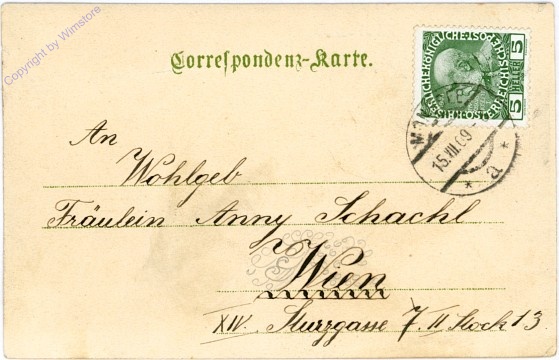 Copyright by Wimstore
Correspondenz-Karte.
KAISERLICHE KÖNIGLICHE ÖSTERREICHISCHE POST
5 HELLER 5
15.VII.09
* a *
An
Wohlgeb
Fräulein Anny Schachl
Wien
XIV. Sturzgasse 7. II Stock 13